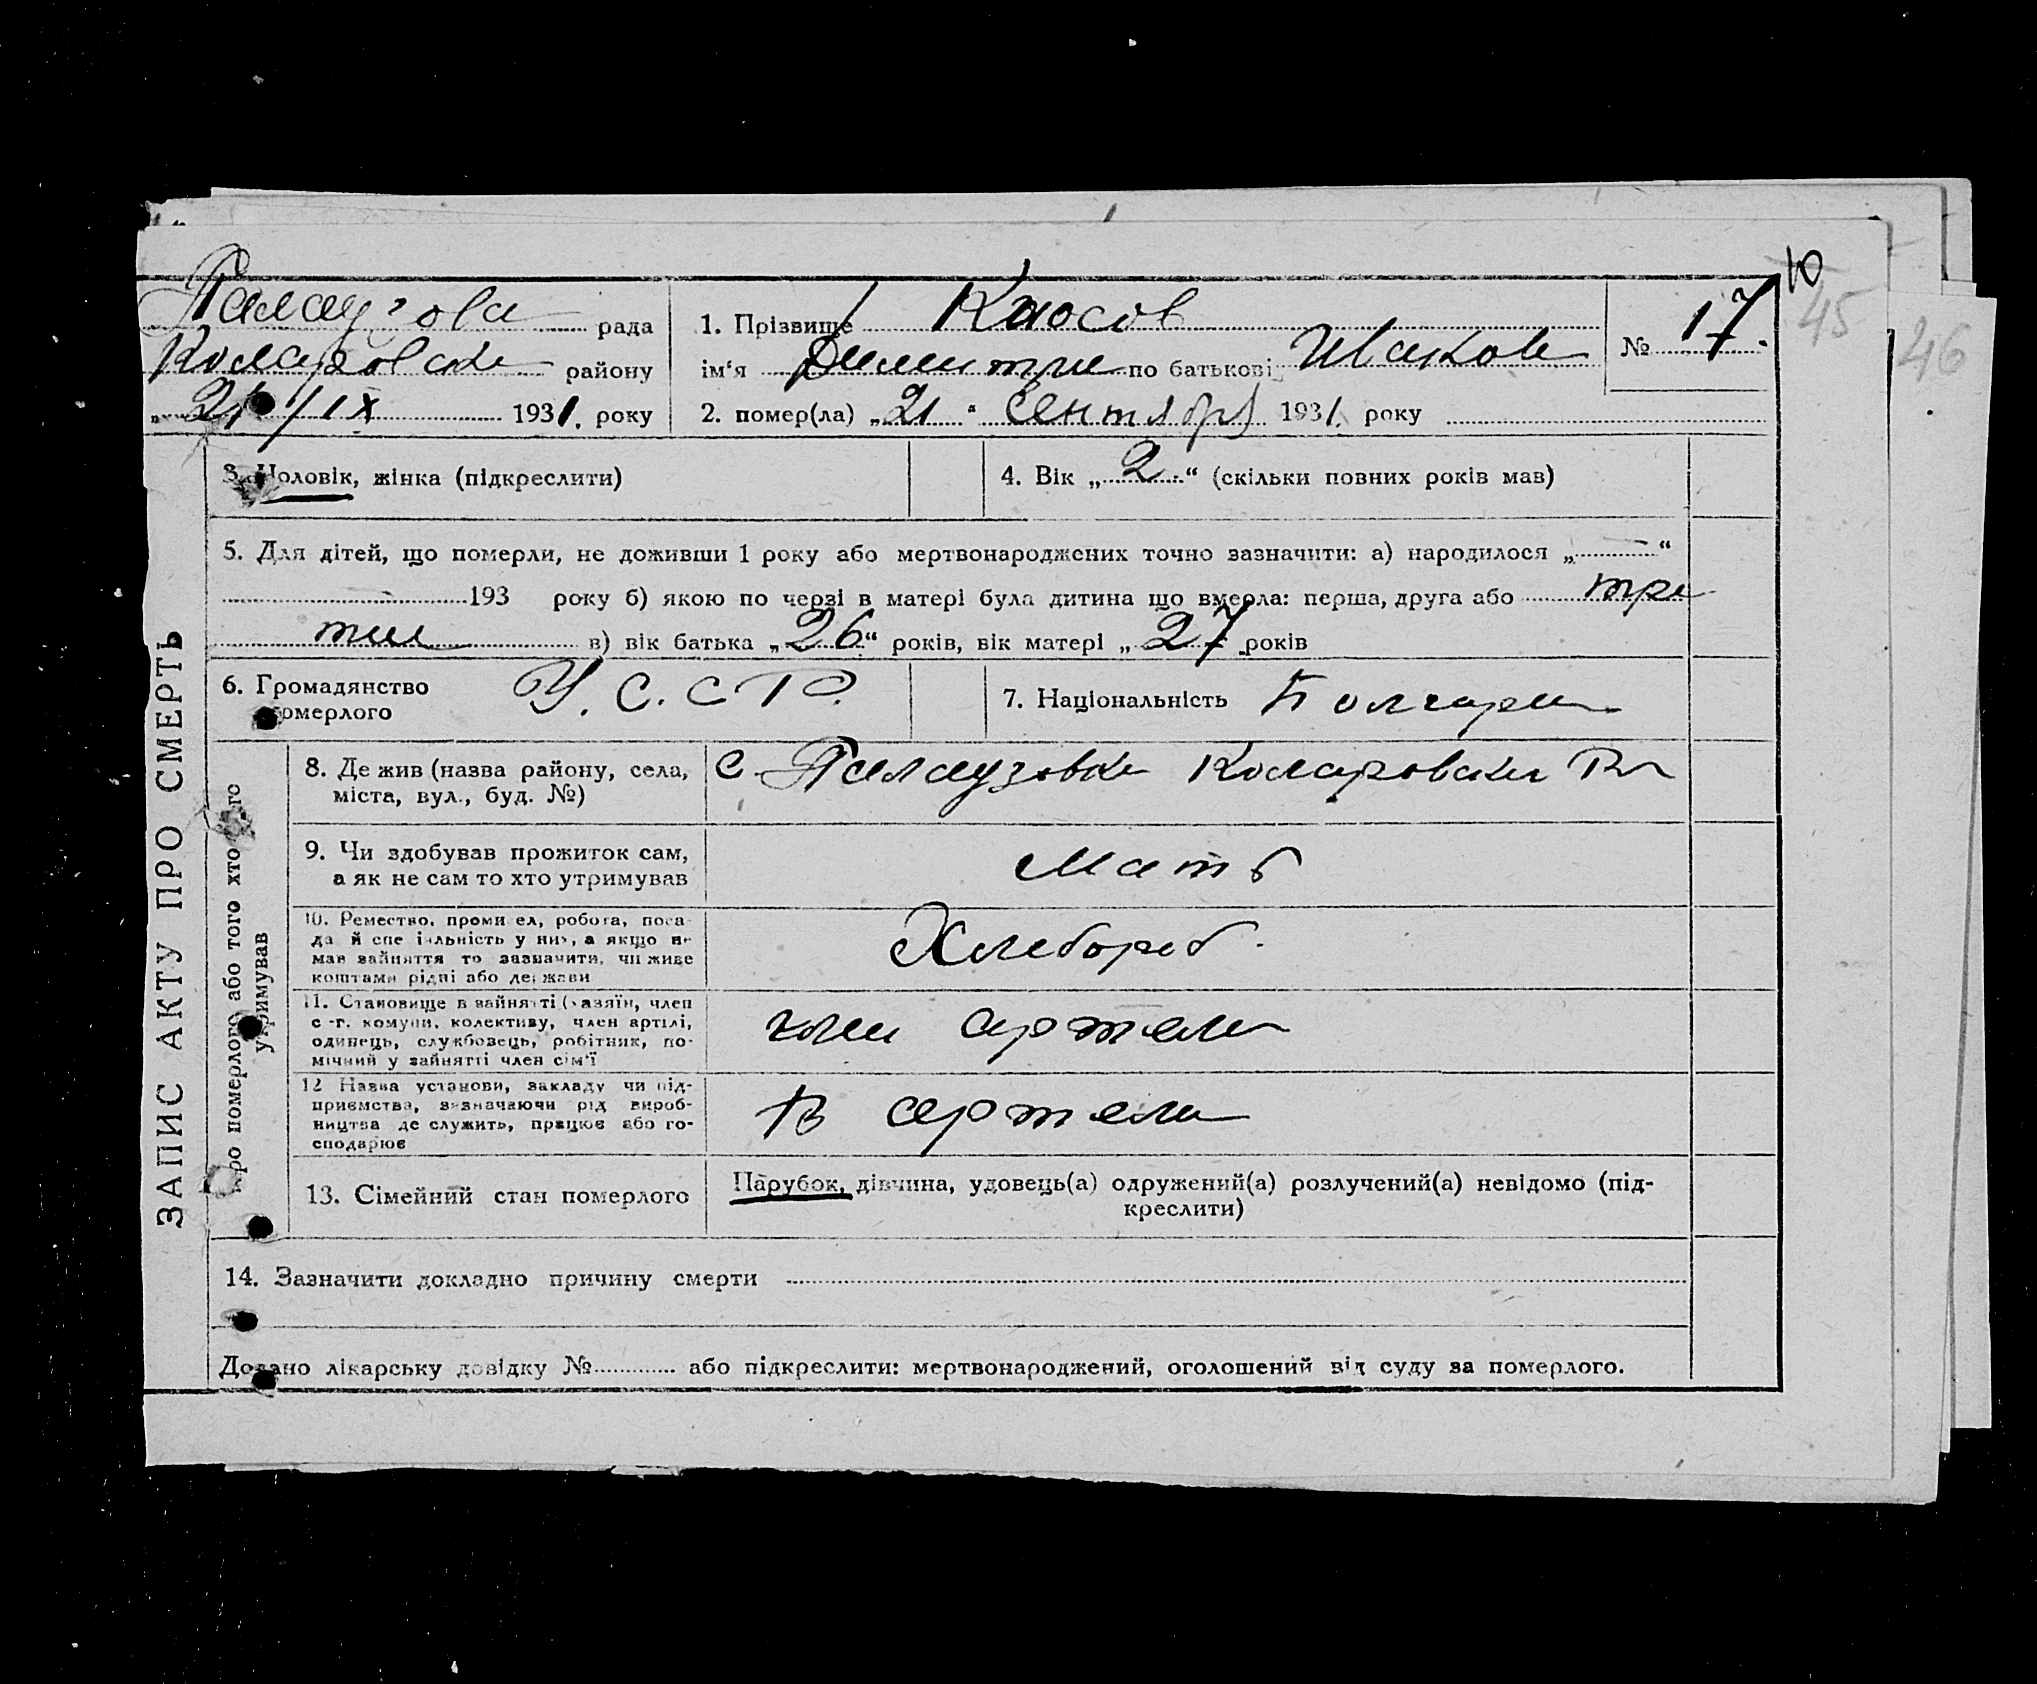 10
45
46
рада 1. Прізвище № 17.
Комаровски району ім'я Димитри по батькові
„21“/IX 1931. року 2. помер(ла) „21“ Сентябр 1931. року
ЗАПИС АКТУ ПРО СМЕРТЬ
3. Чоловік, жінка (підкреслити) 4. Вік „2“ (скільки повних років мав)
5. Для дітей, що померли, не доживши 1 року або мертвонароджених точно зазначити: а) народилося „—“
193 року б) якою по черзі в матері була дитина що вмерла: перша, друга або тре
тии в) вік батька „26“ років, вік матері „27 років
6. Громадянство У.С.С.Р. 7. Національність Болгари
померлого
Про померлого або того хто його
утримував
8. Де жив (назва району, села, с. Палаузовка Комаровски
міста, вул., буд. №)
9. Чи здобував прожиток сам, Мать
а як не сам то хто утримував
10. Ремество, промисел, робота, поса-
да й спеціальність у них, а якщо не
мав зайняття то зазначити, чи живе Хлебороб.
коштами рідні або держави
11. Становище в зайнятті (хазяїн, член
с-г. комуни, колективу, член артілі, член артели
одинець, службовець, робітник, по-
мічний у зайнятті член сім'ї
12 Назва установи, закладу чи під-
приємства, визначаючи рід вироб- В артели
ництва де служить, працює або го-
сподарює
13. Сімейний стан померлого Парубок, дівчина, удовець(а) одружений(а) розлучений(а) невідомо (під-
креслити)
14. Зазначити докладно причину смерти
Додано лікарську довідку № або підкреслити: мертвонароджений, оголошений від суду за померлого.